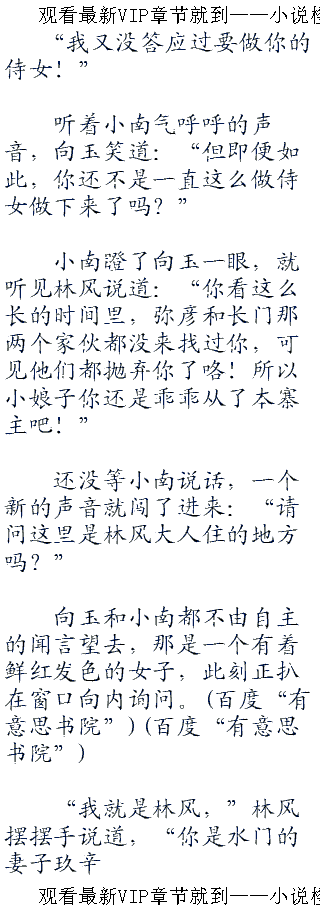 观看最新VIP章节就到——小说检
“我又没答应过要做你的
侍女！”
听着小南气呼呼的声
音，向玉笑道：“但即便如
此，你还不是一直这么做侍
女做下来了吗？”
小南瞪了向玉一眼，就
听见林风说道：“你看这么
长的时间里，弥彦和长门那
两个家伙都没来找过你，可
见他们都抛弃你了咯！所以
小娘子你还是乖乖从了本寨
主吧！”
还没等小南说话，一个
新的声音就闯了进来：“请
问这里是林风大人住的地方
吗？”
向玉和小南都不由自主
的闻言望去，那是一个有着
鲜红发色的女子，此刻正扒
在窗口向内询问。(百度“有
意思书院”)(百度“有意思
书院”)
“我就是林风，”林风
摆摆手说道，“你是水门的
妻子玖辛
观看最新VIP章节就到——小说检